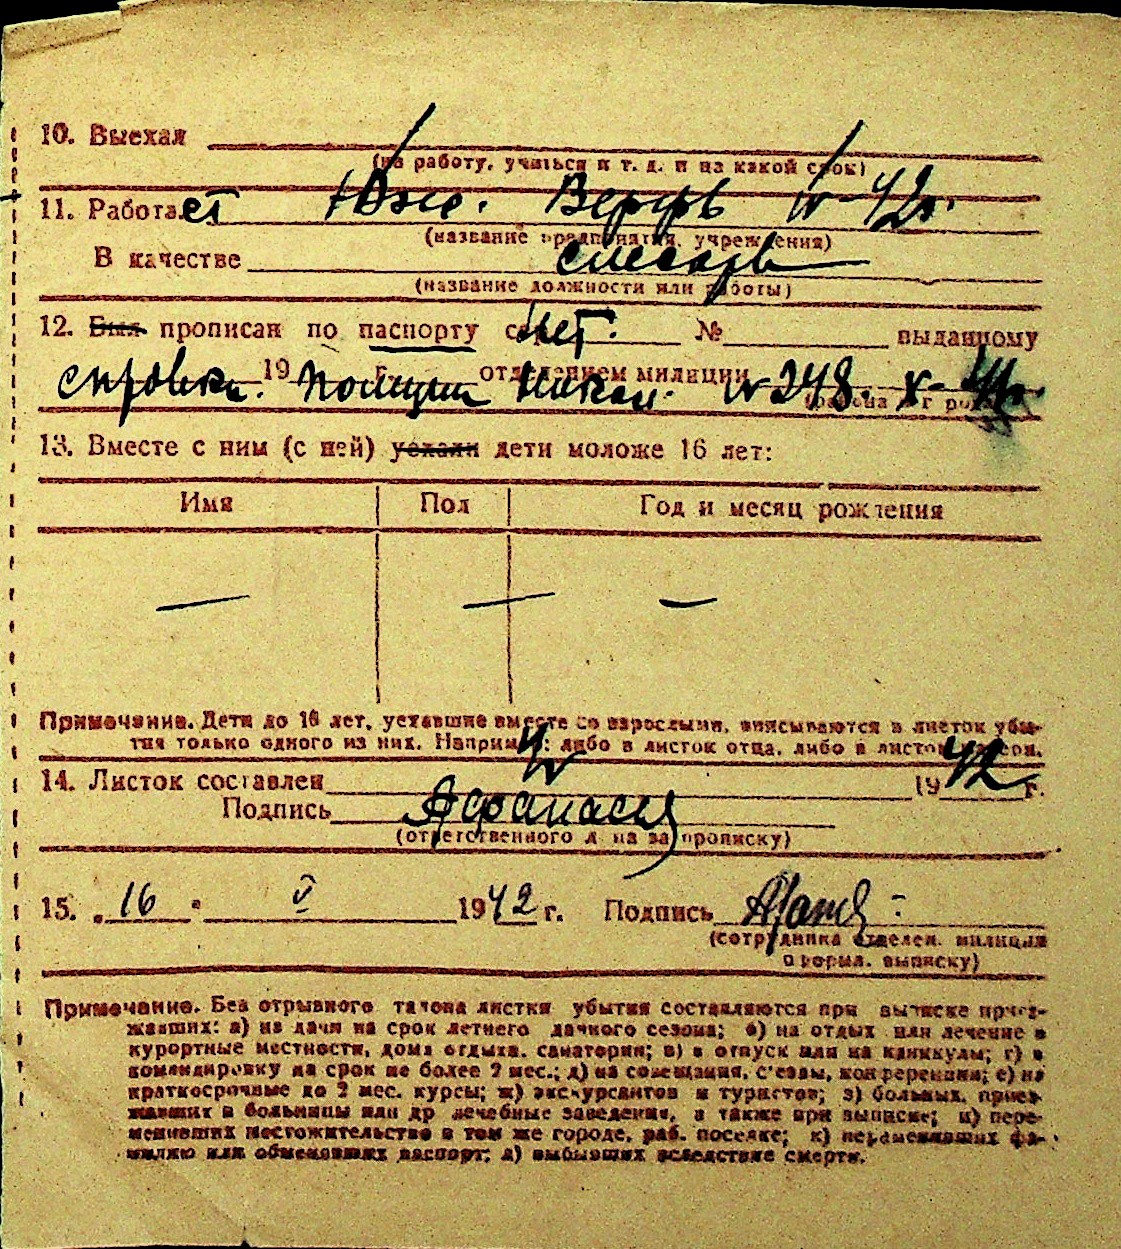 10. Выехал
(на работу, учиться и т. д. и на какой срок)
11. Работает Южн. Верфь V-42г.
(название предприятия, учреждения)
В качестве слесарь
(название должности или работы)
12. Был прописан по паспорту сер. нет. № выданному
справка. 19 г. Полиции отделением милиции Никол. № 248. X-41г.
13. Вместе с ним (с ней) уехали дети моложе 16 лет:
Имя Пол Год и месяц рождения
— — —
Примечание. Дети до 16 лет, уехавшие вместе со взрослыми, вписываются в листок убы-
тия только одного из них. Например: либо в листок отца, либо в листок матери.
14. Листок составлен V 1942 г.
Подпись
(ответственного л. на за прописку)
15. „16 " V 1942 г. Подпись
(сотрудника отделен. милиции
оформл. выписку)
Примечание. Без отрывного талона листки убытия составляются при выписке приез-
жавших: а) на дачи на срок летнего дачного сезона; б) на отдых или лечение в
курортные местности, дома отдыха, санатории; в) в отпуск или на каникулы; г) в
командировку на срок не более 2 мес.; д) на совещания, с'езды, конференции; е) на
краткосрочные до 2 мес. курсы; ж) экскурсантов и туристов; з) больных, приез-
жавших в больницы или др лечебные заведения, а также при выписке; и) пере-
менивших местожительство в том же городе, раб. поселке; к) переменивших фа-
милию или обменявших паспорт; л) выбывших вследствие смерти.